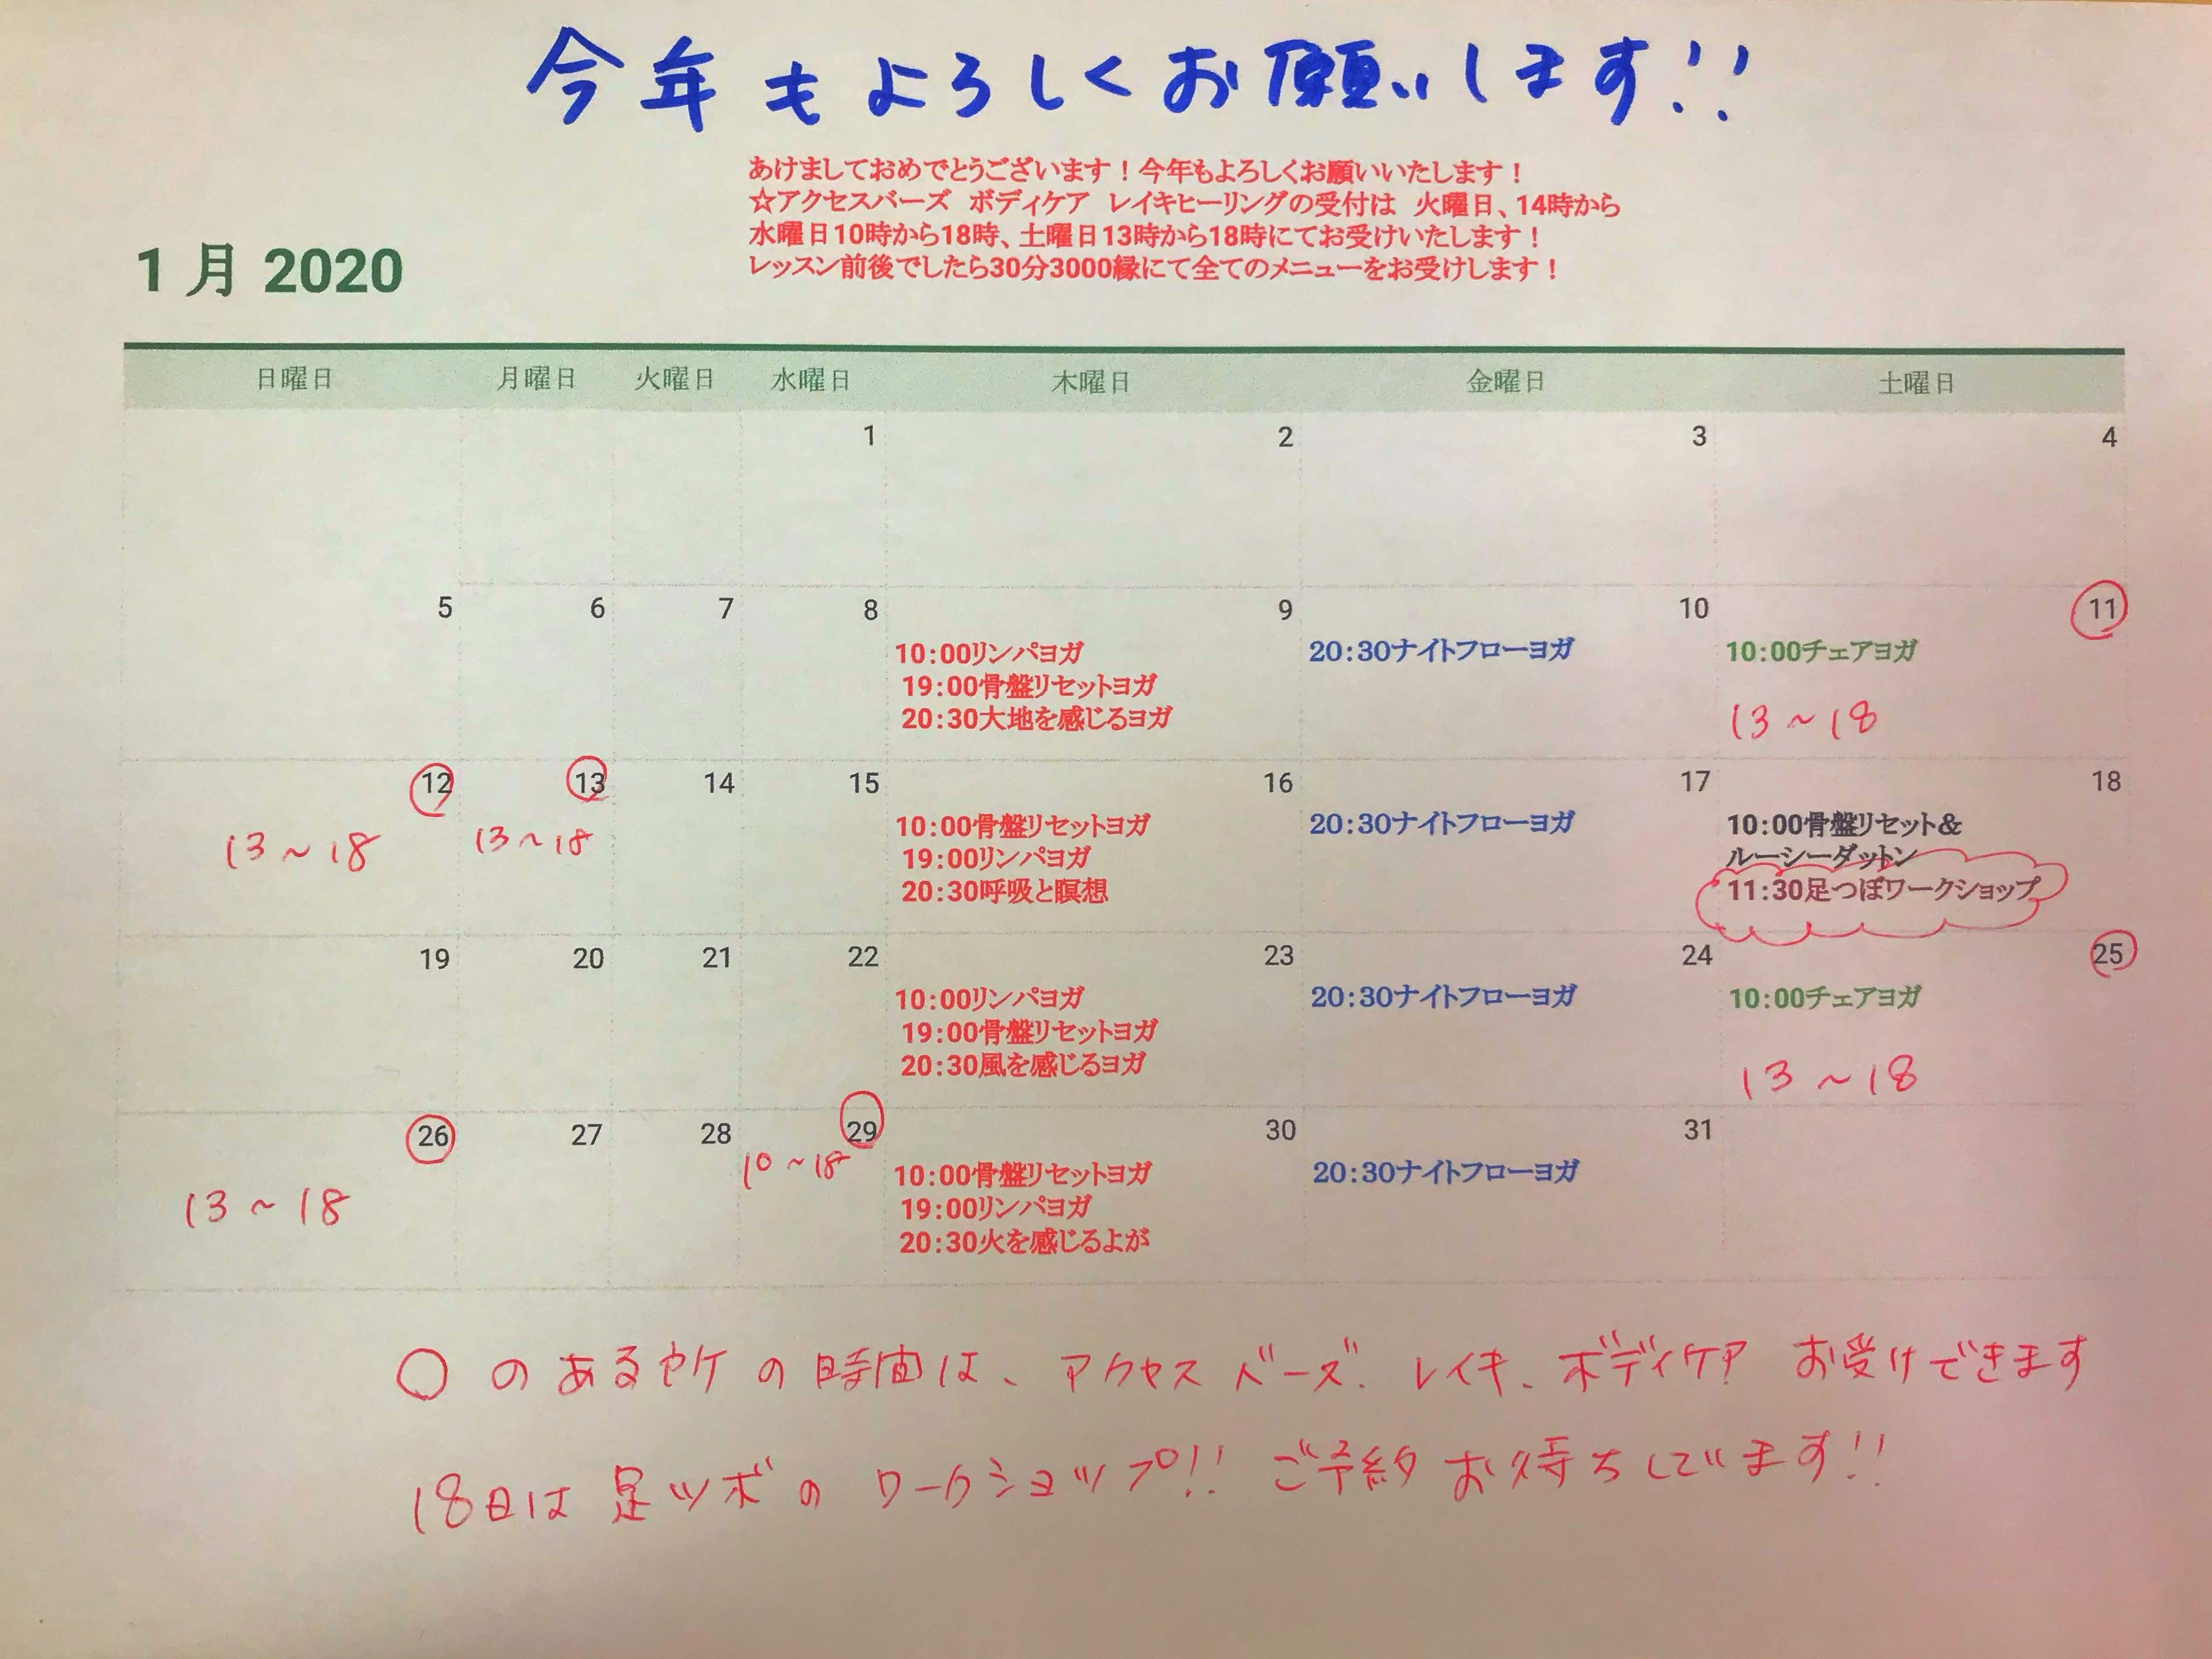 今年もよろしくお願いします!!
あけましておめでとうございます！今年もよろしくお願いいたします！
☆アクセスバーズ　ボディケア　レイキヒーリングの受付は　火曜日、14時から
水曜日10時から18時、土曜日13時から18時にてお受けいたします！
レッスン前後でしたら30分3000縁にて全てのメニューをお受けします！
1月 2020
日曜日 月曜日 火曜日 水曜日 木曜日 金曜日 土曜日
1 2 3 4
5 6 7 8 9 10 11
10:00リンパヨガ 20:30ナイトフローヨガ 10:00チェアヨガ
19:00骨盤リセットヨガ
20:30大地を感じるヨガ 13〜18
12 13 14 15 16 17 18
13〜18 13〜18 10:00骨盤リセットヨガ 20:30ナイトフローヨガ 10:00骨盤リセット＆
19:00リンパヨガ ルーシーダットン
20:30呼吸と瞑想 11:30足つぼワークショップ
19 20 21 22 23 24 25
10:00リンパヨガ 20:30ナイトフローヨガ 10:00チェアヨガ
19:00骨盤リセットヨガ
20:30風を感じるヨガ 13〜18
26 27 28 29 30 31
13〜18 10〜18 10:00骨盤リセットヨガ 20:30ナイトフローヨガ
19:00リンパヨガ
20:30火を感じるよが
○のある日の時間は、アクセスバーズ、レイキ、ボディケア お受けできます
18日は足ツボのワークショップ!! ご予約お待ちしています!!